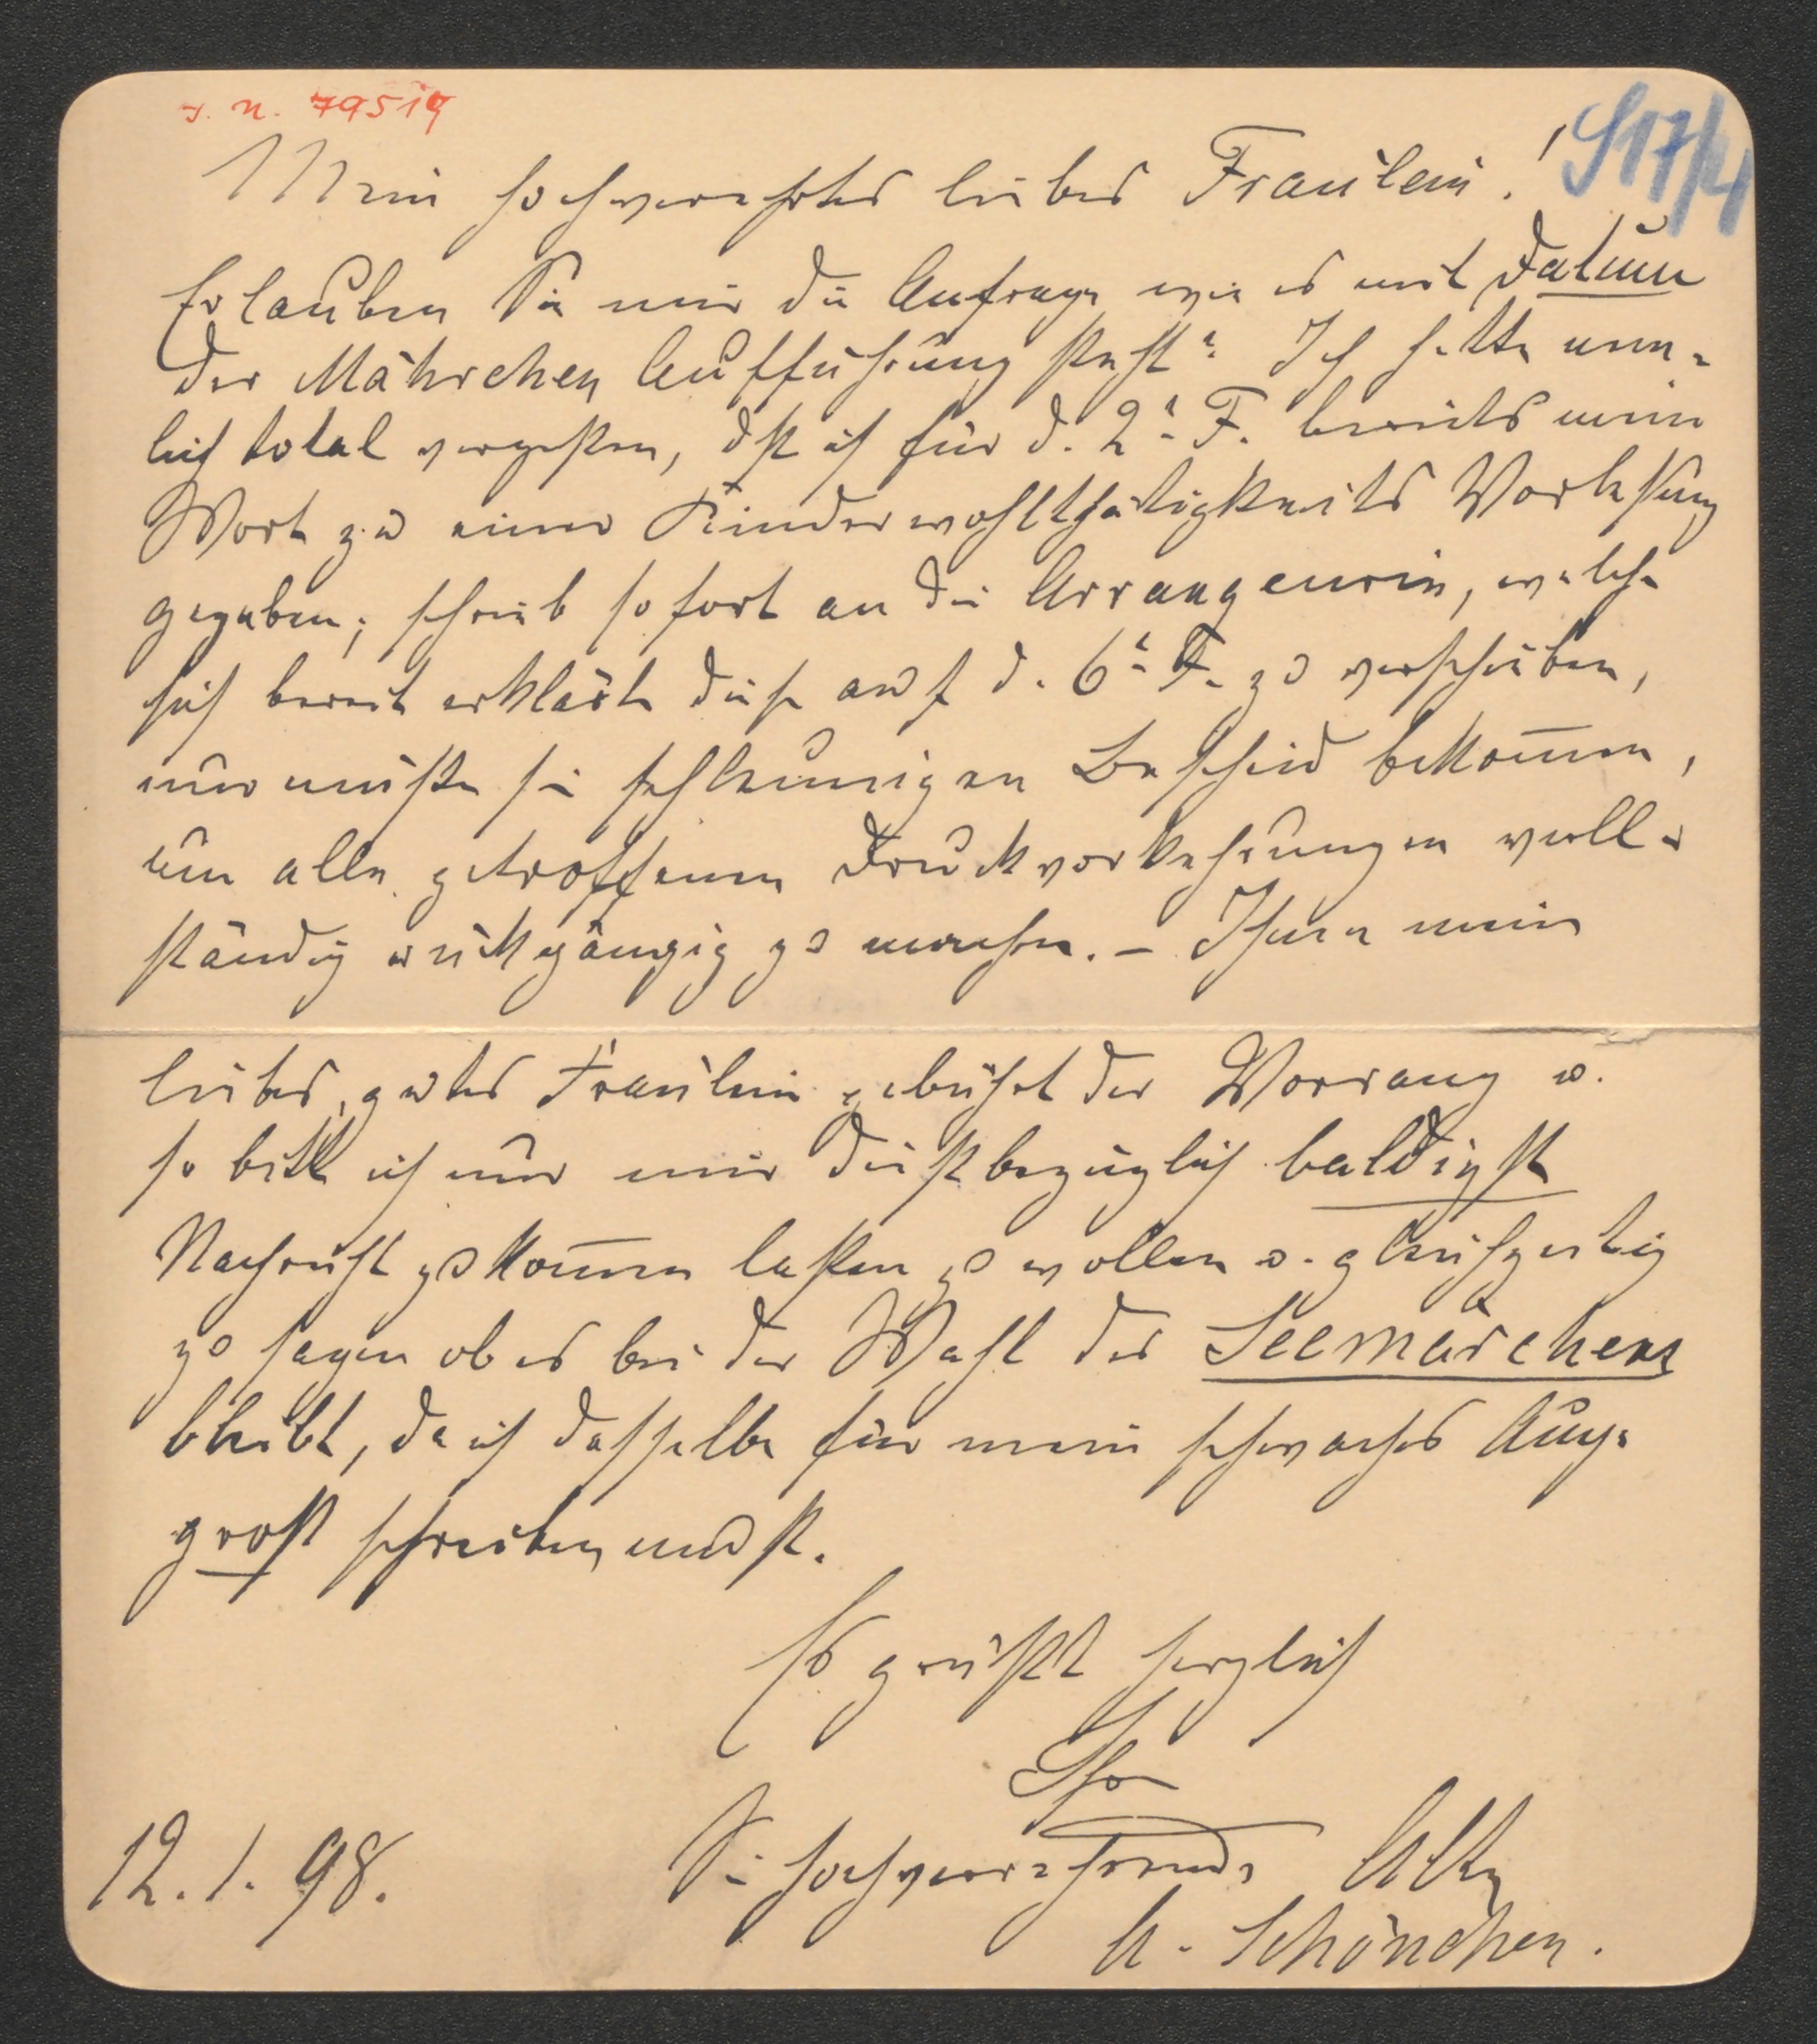 I. N. 79519
S 17/4
Mein hochverehrtes liebes Fraülein!
Erlauben Sie mir die Anfrage wie es mit Datum
der Mährchen Aufführung steht? Ich hatte nem-
lich total vergeßen, dß ich für d. 2t. F. bereits mein
Wort zu einer Kinderwohlthätigkeits Vorlesung
gegeben; schrieb sofort an die Arrangeurin, welche
sich bereit erklärte diese auf d. 6t. F. zu verschieben,
nur müßte sie schleunigen Bescheid bekom̅en,
um alle getroffenen Druckvorkehrungen voll-
ständig rückgängig zu machen. – Ihnen mein
liebes, gutes Fraülein gebührt der Vorrang u.
so bitte ich nur mir dießbezüglich baldigst
Nachricht zukom̅en laßen zu wollen u. gleichzeitig
zu sagen ob es bei der Wahl des Seemärchens
bleibt, da ich dasselbe für mein schwaches Auge
groß schreiben muß.
Es grüßt herzlich
Ihre
Sie hochverehrende Alte
A. Schönchen.
12.1.98.